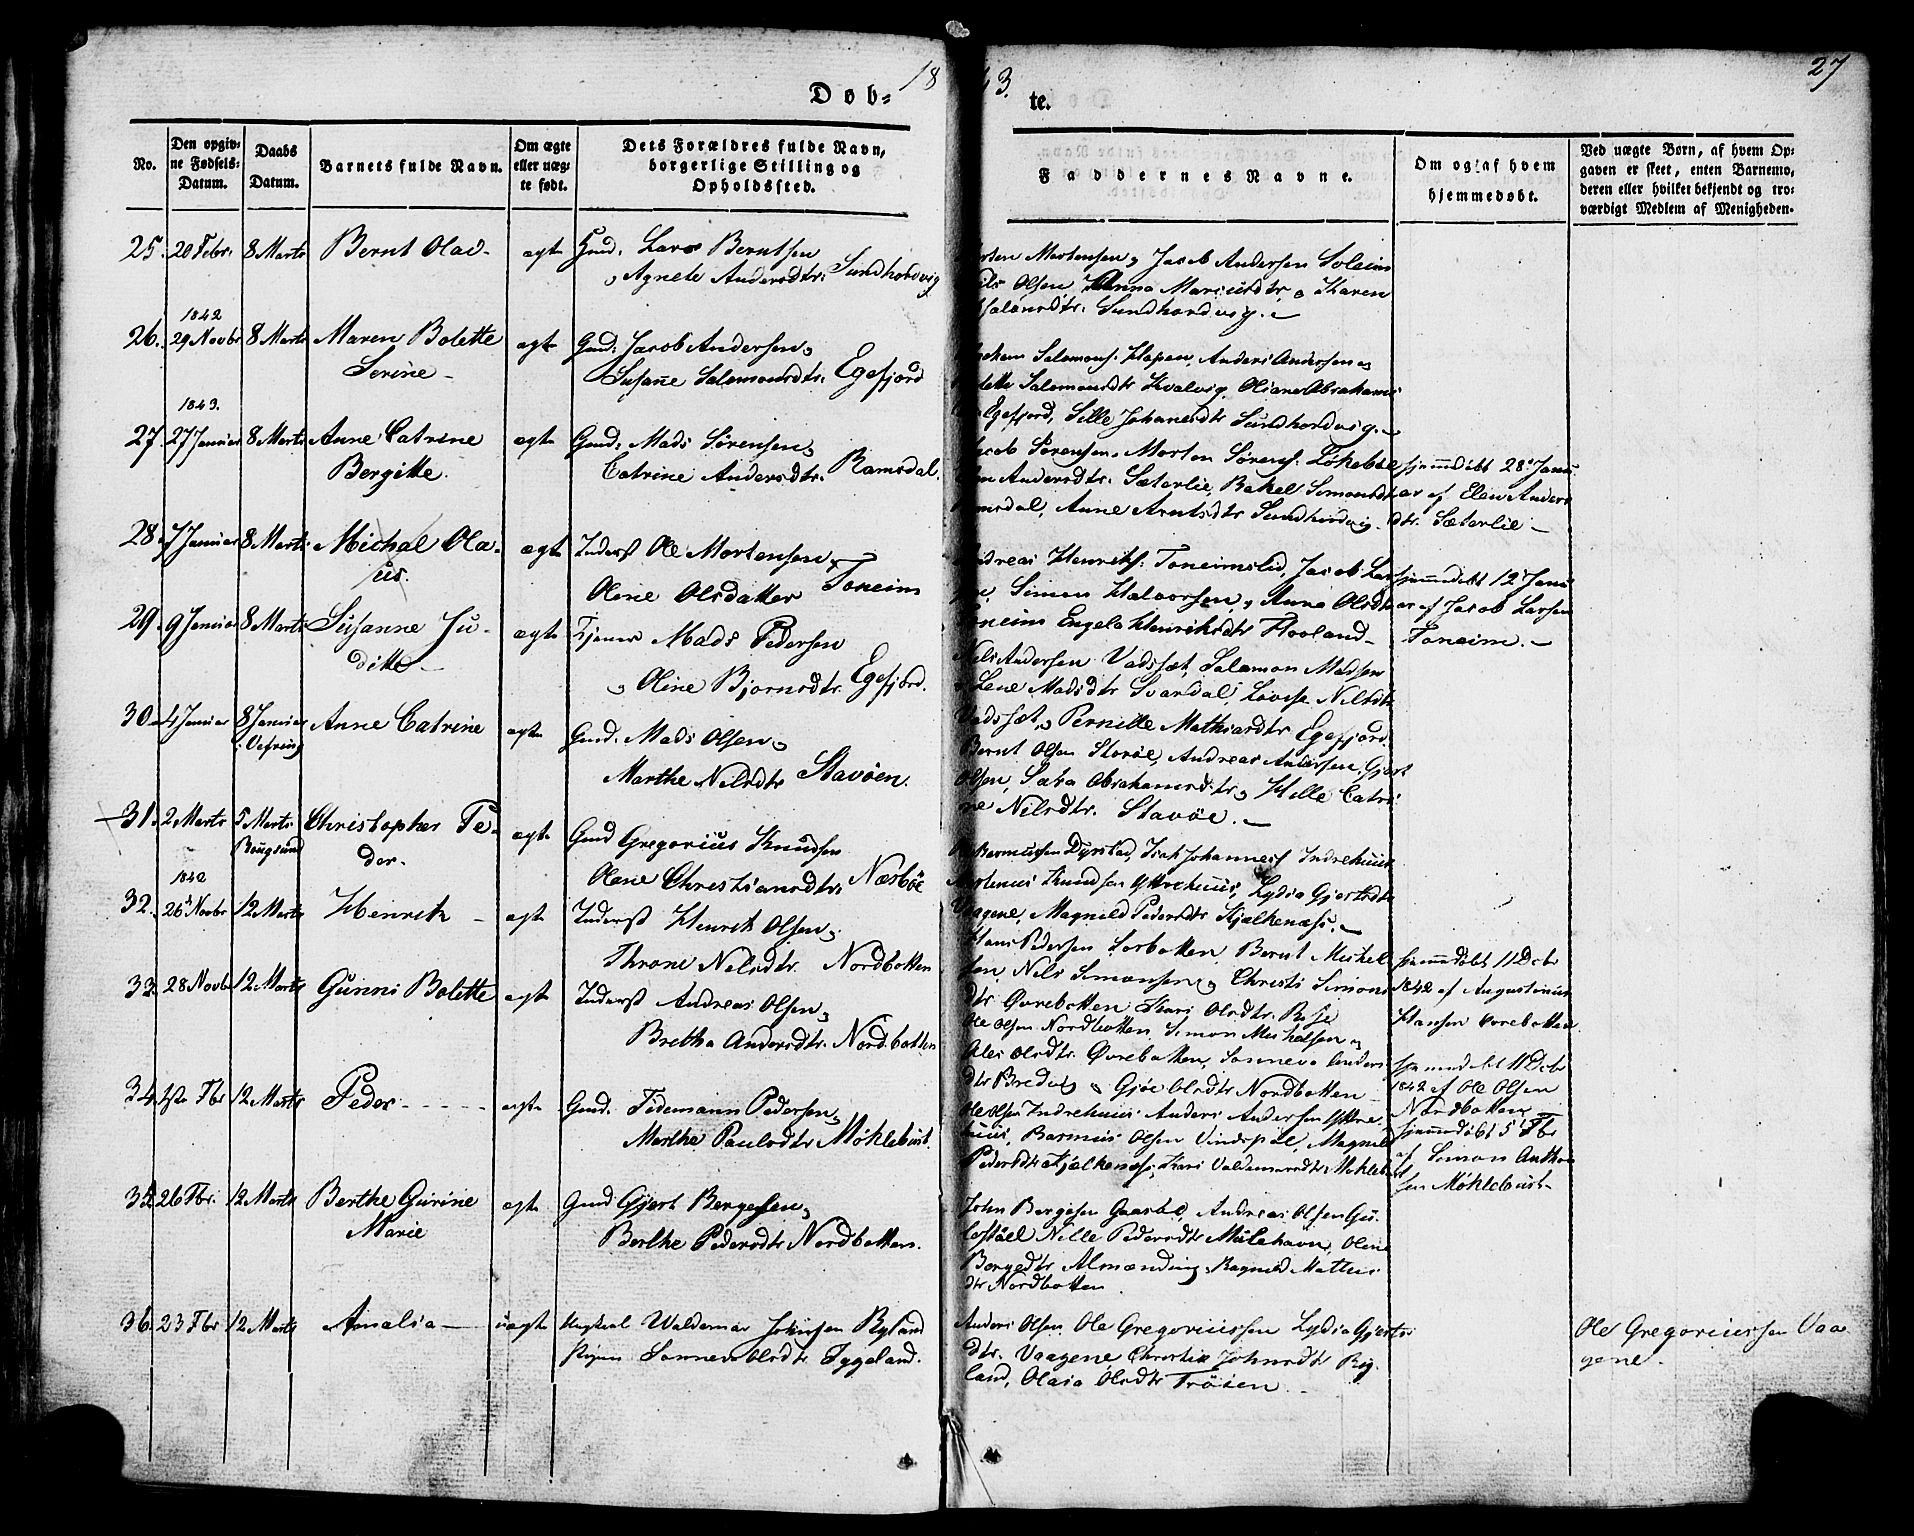 18
43.
27
Døb-
te.
No.
Den opgiv-
ne Fødsels-
Datum.
Daabs
Datum.
Barnets fulde Navn.
Om ægte
eller uæg-
te født.
Dets Forældres fulde Navn,
borgerlige Stilling og
Opholdssted.
Faddernes Navne.
Om og af hvem
hjemmedøbt.
Ved uægte Børn, af hvem Op-
gaven er skeet, enten Barnemo-
deren eller hvilket bekjendt og tro-
værdigt Medlem af Menigheden.
25. 20 Febr. 8 Marts Bernt Olai- ægte Gmd. Lars Berntsen
Agnete Andersdtr. Sundhordvig
Morten Mortensen, Jacob Andersen Soleim
Nils Olsen, Anna Mariusdtr, Karen
Sundhordvig.
1842
26. 29 Novbr 8 Marts Maren Bolette
Serine- ægte Gmd. Jacob Andersen
Susane Salomonsdtr. Egefjord
Salomons. Hapen, Anders Andersen
Salomonsdtr Kvalvig, Oliane Abrahams
Egefjord, Sille Johanesdtr Sundhordvig.
1843.
27. 27 Januar 8 Marts Anne Catrine
Bergitte. ægte Gmd. Mads Sørensen
Catrine Andersdtr. Ramsdal.
Jacob Sørensen, Morten Sørens. Løkeboe
Elen Andersdtr. Sæterlie, Rakel Simonsdtr
Ramsdal, Anne Arntsdtr Sundhordvig.
hjemmdøbt 28 Janu
ar af Elen Anders
dtr. Sæterlie-
28. 7 Januar 8 Marts Michal Ola-
us. ægte Inderst Ole Mortensen
Olene Olsdatter Toneim
Andreas Henriks. Toneimslid, Jacob Lar
sen, Simon Halvorsen, Anna Olsdtr
Toneim Engela Henriksdtr Floland-
hjemmdøbt 12 Janu
ar af Jacob Larsen
Toneim.-
29. 9 Januar 8 Marts Susanne Ju-
ditte- ægte Tjener Mads Pedersen
Oline Bjørnsdtr. Egefjord.
Nils Andersen Vadsæt, Salamon Madsen
Lene Madsdtr Svardal, Lovise Nilsdtr
Vadsæt, Pernille Mathiasdtr Egefjord.
30. 4 Januar 8 Januar
i Vefring Anne Catrine ægte Gmd. Mads Olsen
Marthe Nilsdtr Stavøen.
Bernt Olsen Storøe, Andreas Andersen, Gjert
Olsen, Sara Abrahamsdtr, Helle Catri
ne Nilsdtr. Stavøe.-
31. 2 Marts 5 Marts
Bougsund Christopher Pe-
der. ægte Gmd Gregorius Knudsen
Olene Christiansdtr. Næsbøe
Rasmussen Dyrstad, Isak Johannes Indrehuus
Martenius Knudsen Yttrehuus, Lydia Gjertsdtr
Vaagene, Magnild Pedersdtr Kjelkenæs.-
1842
32. 26 Novbr 12 Marts Henrik- ægte Inderst Henrik Olsen
Throne Nilsdtr. Nordbotten
Hans Pedersen Sørbotten, Bernt Mickel
sen, Nils Simonsen, Christi Simons
dtr Øvrebotten, Kari Olsdtr. Rise
hjemmdøbt 11 Decbr
1842 af Augustinus
Hansen Øvrebotten
33. 28 Novbr 12 Marts Gunni Bolette ægte Inderst Andreas Olsen
Bretha Andersdtr. Nordbotten
Ole Olsen Nordbotten, Simon Mickelsen
Ales Olsdtr. Øvrebotten, Sanneva Anders
dtr Bredvig Gjøe Olsdtr Nordbotten-
hjemmdøbt 11 Decbr
1842 af Ole Olsen
Nordbotten
34. 1ste Fbr 12 Marts Peder- ægte Gmd. Tidemann Pedersen
Marthe Paulsdtr Møklebust.
Ole Olsen Indrehuus, Anders Andersen Yttre-
huus, Rasmus Olsen Vindspol, Magnild
Pedersdtr Kjelkenæs, Kari Valdemarsdtr Møklebust
hjemmdøbt 5 Fbr
af Simon Anthon
sen Møklebust-
35. 26 Fbr. 12 Marts Berthe Gurine
Marie ægte Gmd Gjert Bergesen
Berthe Pedersdtr Nordbotten.
John Bergesen Gaasbø, Andreas Olsen Gu-
Nille Pedersdtr Mulehavn, Oline
Borgedtr Almænding, Ragnild Mattias
dtr Nordbotten
36. 23 Fbr 12 Marts Amalia- uægte Ungkarl Waldemar Johnsen Rygland
Pigen Sanneva Olsdtr Tygeland.
Anders Olsen, Ole Gregoriussen Lydia Gjerts
dtr. Vaagene, Christie Johnsdtr Ryg-
land, Olava Olsdtr Trøien.-
Ole Gregoriussen Vaa-
gene.